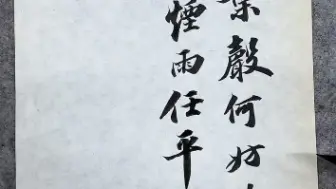 葉聲何妨
煙雨任平